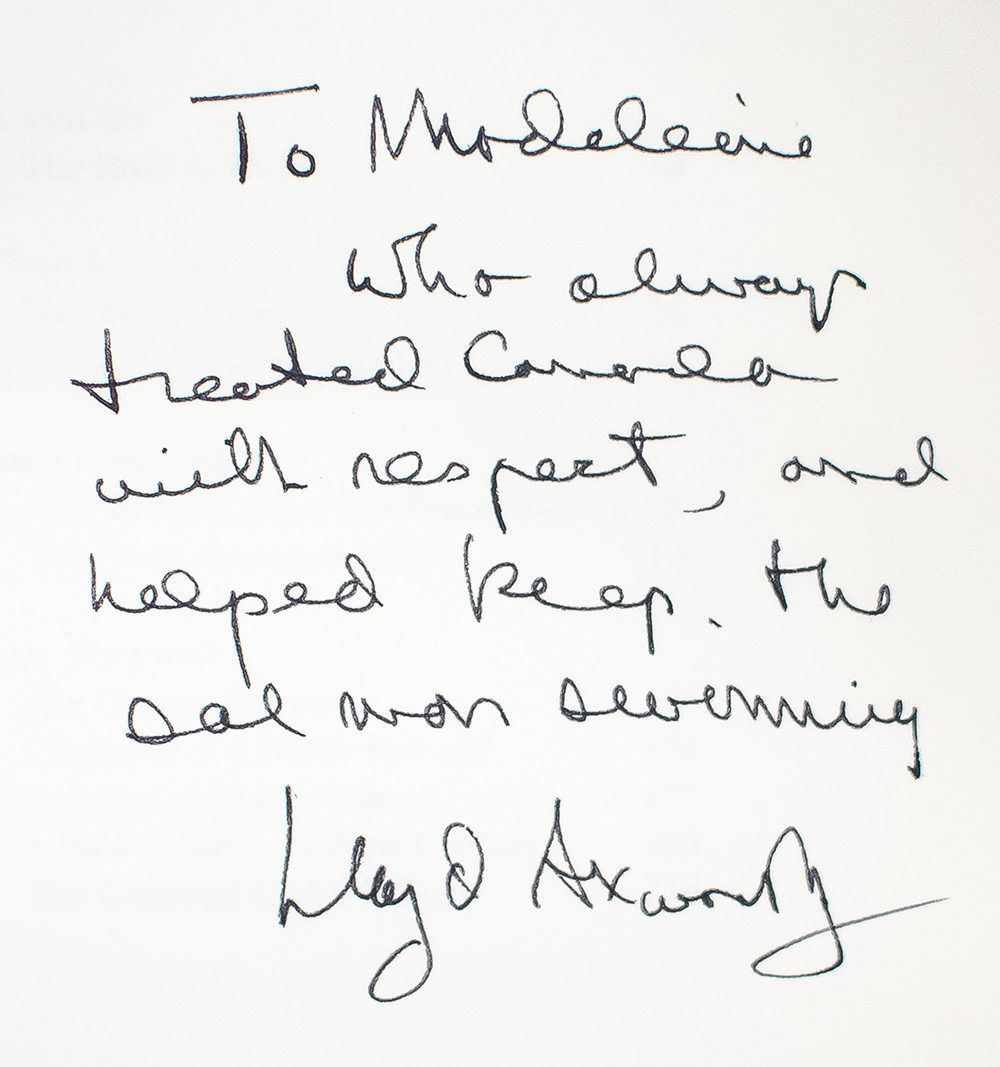 To Madeleine
who always
treated Canada
with respect, and
helped keep. the
salmon swimming
Lloyd Axworthy